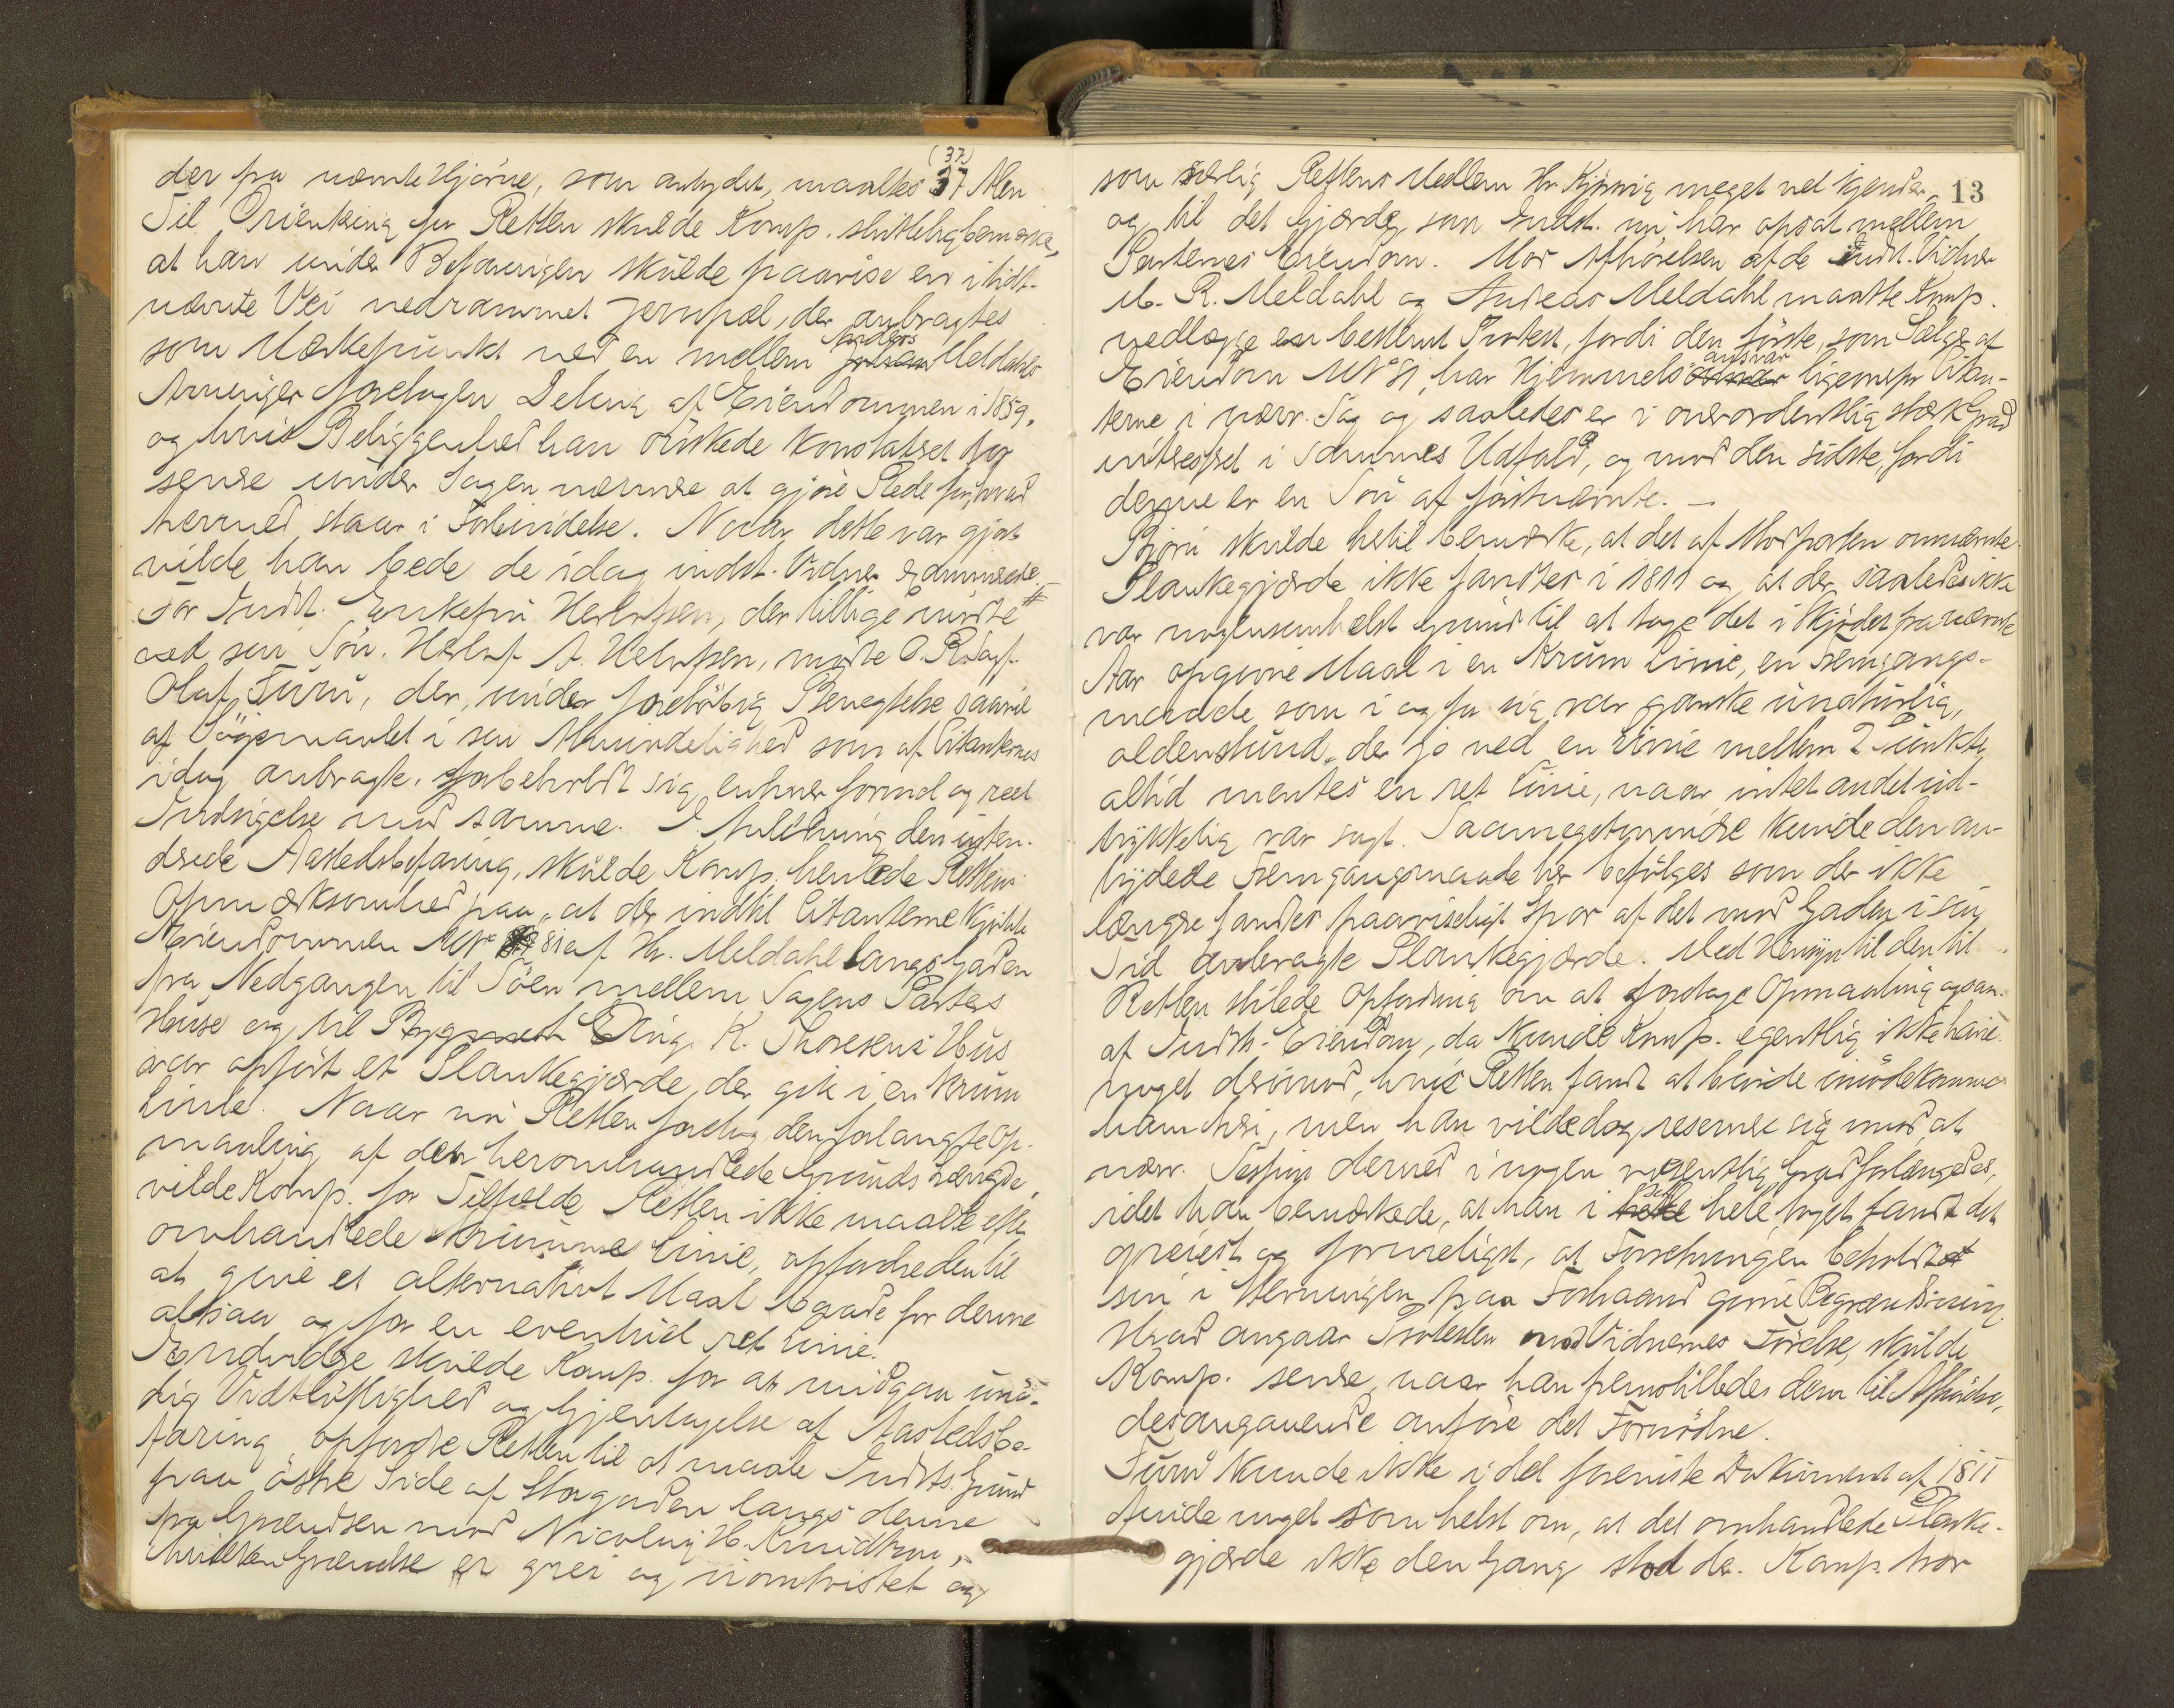 (37)
der fra nævnte Hjørne, som antydet, maaltes 37 Alen
Til Orientering for Retten skulde Komp. sluttelig bemærke,
at han under Befaringen skulde paavise en i tidt-
nævnte Vei nedrammet Jernpæl, der anbragtes
som Mærkepunkt ved en mellem Anders Meldahls
Arvinger foretagen Deling af Eiendommen i 1859,
og hvis Beliggenhed han ønskede konstateret for
senere under Sagen nærmere at gjøre Rede for, hvad
hermed staar i Forbindelse. Naar dette var gjort
vilde han bede de idag indst. Vidner examinerede.
For Indst. Enkefru Herlofsen, der tillige mødte #
ved sin Søn, Herlof A. Herlofsen, mødte O.R.sagf.
Oluf Furu, der, under foreløbig Benegtelse saavel
af Søgemaalet i sin Almindelighed som af Citanternes
idag anbragte, forbeholdt sig enhver formel og reel
Indsigelse mod samme. I Anledning den igten-
derede Aastedsbefaring, skulde Komp. henlede Rettens
Opmærksomhed paa, at der indtil Citanterne kjøbte
Eiendommen MNr 81 af Hr. Meldahl langs Gaden
fra Nedgangen til Søen mellem Sagens Parters
Huse og til Eling K. Thoresens Hus
var opført et Plankegjærde, der gik i en krum
Linie. Naar nu Retten foretog den forlangte Op-
maaling af den heromhandlede Grunds Længde,
vilde Komp. for Tilfælde Retten ikke maalte efter
omhandlede krumme Linie, opfordre den til
at give et alternativt Maal baade for denne
altsaa og for en eventuel ret Linie.
Endvidere skulde Komp. for at undgaa unø-
dig Vidtløftighed og Gjentagelse af Aastedsbe-
faring, opfordre Retten til at maale Indsts. Grund
paa østre Side af Storgaden langs denne
fra Grændsen mod Nicolay H. Knudtzon,
hvilken Grændse er grei og uomtvistet og
13
som særlig Rettens Medlem Hr. Kjønig meget vel kjender,
og til det Gjærde, som Indst. nu har opsat mellem
Parternes Eiendom. Mod Afhørelsen af de indst. Vidner
M. R. Meldahl og Andreas Meldahl maatte Komp.
nedlægge en bestemt Protest, fordi den første, som Sælger af
Eiendom MNo 81, har Hjemmelsansvar ligeoverfor Citan-
terne i nærv. Sag og saaledes er i overordentlig stærk Grad
interesseret i Sammes Udfald, og mod den sidste, fordi
denne er en Søn af førstnævnte. —
Bjørn skulde hertil bemærke, at det af Modparten omnævnte
Plankegjærde ikke fandtes i 1811 og, at der saaledes ikke
var nogensomhelst Grund til at tage det i Skjødet fra nævnte
Aar opgivne Maal i en krum Linie, en Fremgangs-
maade, som i og for sig var ganske unaturlig,
aldenstund der jo ved en Linie mellem 2 Punkter
altid mentes en ret Linie, naar intet andet ud-
trykkelig var sagt. Saameget mindre kunde den an-
tydede Fremgangsmaade her befølges som der ikke
længre fandtes paaviseligt Spor af det mod Gaden i sin
Tid anbragte Plankegjærde. Med Hensyn til den til
Retten stilede Opfordring om at foretage Opmaaling ogsaa
af Indst. Eiendom, da kunde Komp. egentlig ikke have
noget derimod, hvis Retten fandt at burde imødekomme
ham heri, men han vilde dog reservere sig mod, at
nærv. Session derved i nogen væsentlig Grad forlængedes,
idet han bemærkede, at han i det hele taget fandt det
greiest og formeligst, at Forretningen beholdt
sin i Stevningen paa Forhaand givne Begrændsning.
Hvad angaar Protesten mod Vidnernes Førelse, skulde
Komp. senere, naar han fremstilledes dem til Afhørelse,
desangaaende anføre det Fornødne.
Furu kunde ikke i det foreviste Dokument af 1811
finde noget somhelst om, at det omhandlede Planke-
gjærde ikke den Gang stod der. Komp. tror